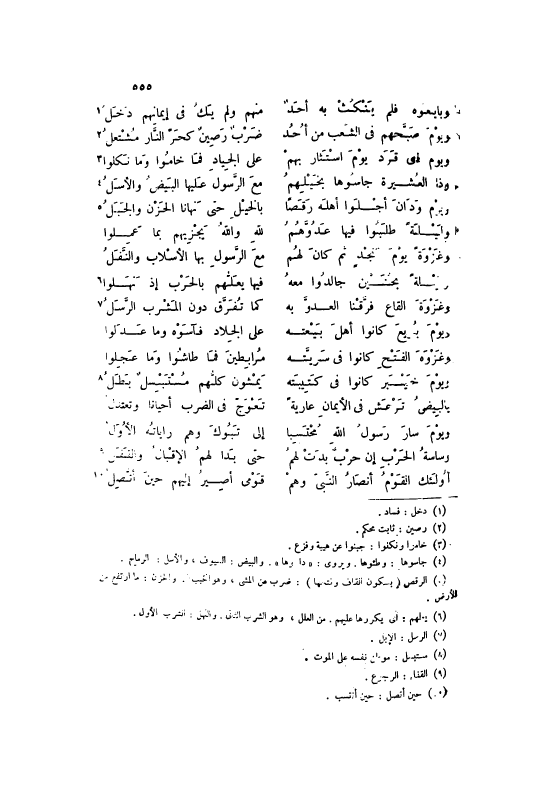 ٥٥٥
وبايعوه فلم يَنْكُثْ به أحدٌ منهم ولم يكُ في إيمانهم دخَلُ ١
ويومَ صبَّحهم في الشِّعب من أُحُد ضرْبٌ رَصينٌ كحرّ النَّار مُشتعلُ ٢
ويوم ذي قَرَد يومَ استثار بهمْ على الجياد فما خاموا وما نكلوا ٣
وذا العُشيرة جاسوها بخيْلِهمُ معَ الرَّسول عليها البَيْضُ والأسَلُ ٤
ويومَ ودّان أجلَوا أهله رقَصًا بالخيْل حتى نهانا الحَزْن والجَبَلُ ٥
وليْلةً طلبُوا فيها عدُوَّهُمُ لله واللهُ يَجْزيهم بما عمِلوا
وغزْوَةً يومَ نَجْدٍ ثم كان لهُم معَ الرَّسول بها الأسلاب والنَّفَلُ
وليلةً بحُنَينْ جالدوا معهُ فيها يعلُّهم بالحَرْب إذ نَهِلوا ٦
وغزْوَةَ القاع فرَّقْنا العدوَّ به كما تُفرَّق دون المَشرب الرَّسَلُ ٧
ويومَ بُويعَ كانوا أهلَ بَيْعته على الجلاد فآسَوْه وما عَدلوا
وغزْوَةَ الفتْح كانوا في سَريَّته مُرابطينَ فما طاشُوا وما عَجِلوا
ويومَ خَيْبرَ كانوا في كتيبته يمْشون كلُّهم مُسْتَبْسِلٌ بَطَلُ ٨
بالبيض ترْعَش في الأيمان عاريةً تَعْوَجُّ في الضرب أحيانا وتعتدلُ
ويومَ سارَ رسولُ الله مُحْتَسِبا إلى تَبُوكَ وهم راياتُه الأُوَلُ
وساسةُ الحرْب إن حرْبٌ بدَتْ لهُمُ حتى بدا لهُمُ الإقبالُ والقَفَلُ ٩
أولئك القوْمُ أنصارُ النَّبيّ وهمْ قوْمي أصيرُ إليهم حينَ أتَّصِلُ ١٠
(١) دخل : فساد .
(٢) رصين : ثابت محكم .
(٣) خاموا ونكلوا : جبنوا عن هيبة وفزع .
(٤) جاسوها : وطئوها . ويروى : « داسوها » . والبيض : السيوف ، والأسل : الرماح .
(٥) الرقص ( بسكون القاف وفتحها ) : ضرب من المشى ، وهو الخبب . والحزن : ما ارتفع من
الأرض .
(٦) يعلهم : أى يكررها عليهم . من العلل ، وهو الشرب الثانى . والنهل : الشرب الأول .
(٧) الرسل : الإبل .
(٨) مستبسل : موطن نفسه على الموت .
(٩) القفل : الرجوع .
(١٠) حين أتصل : حين أنتسب .